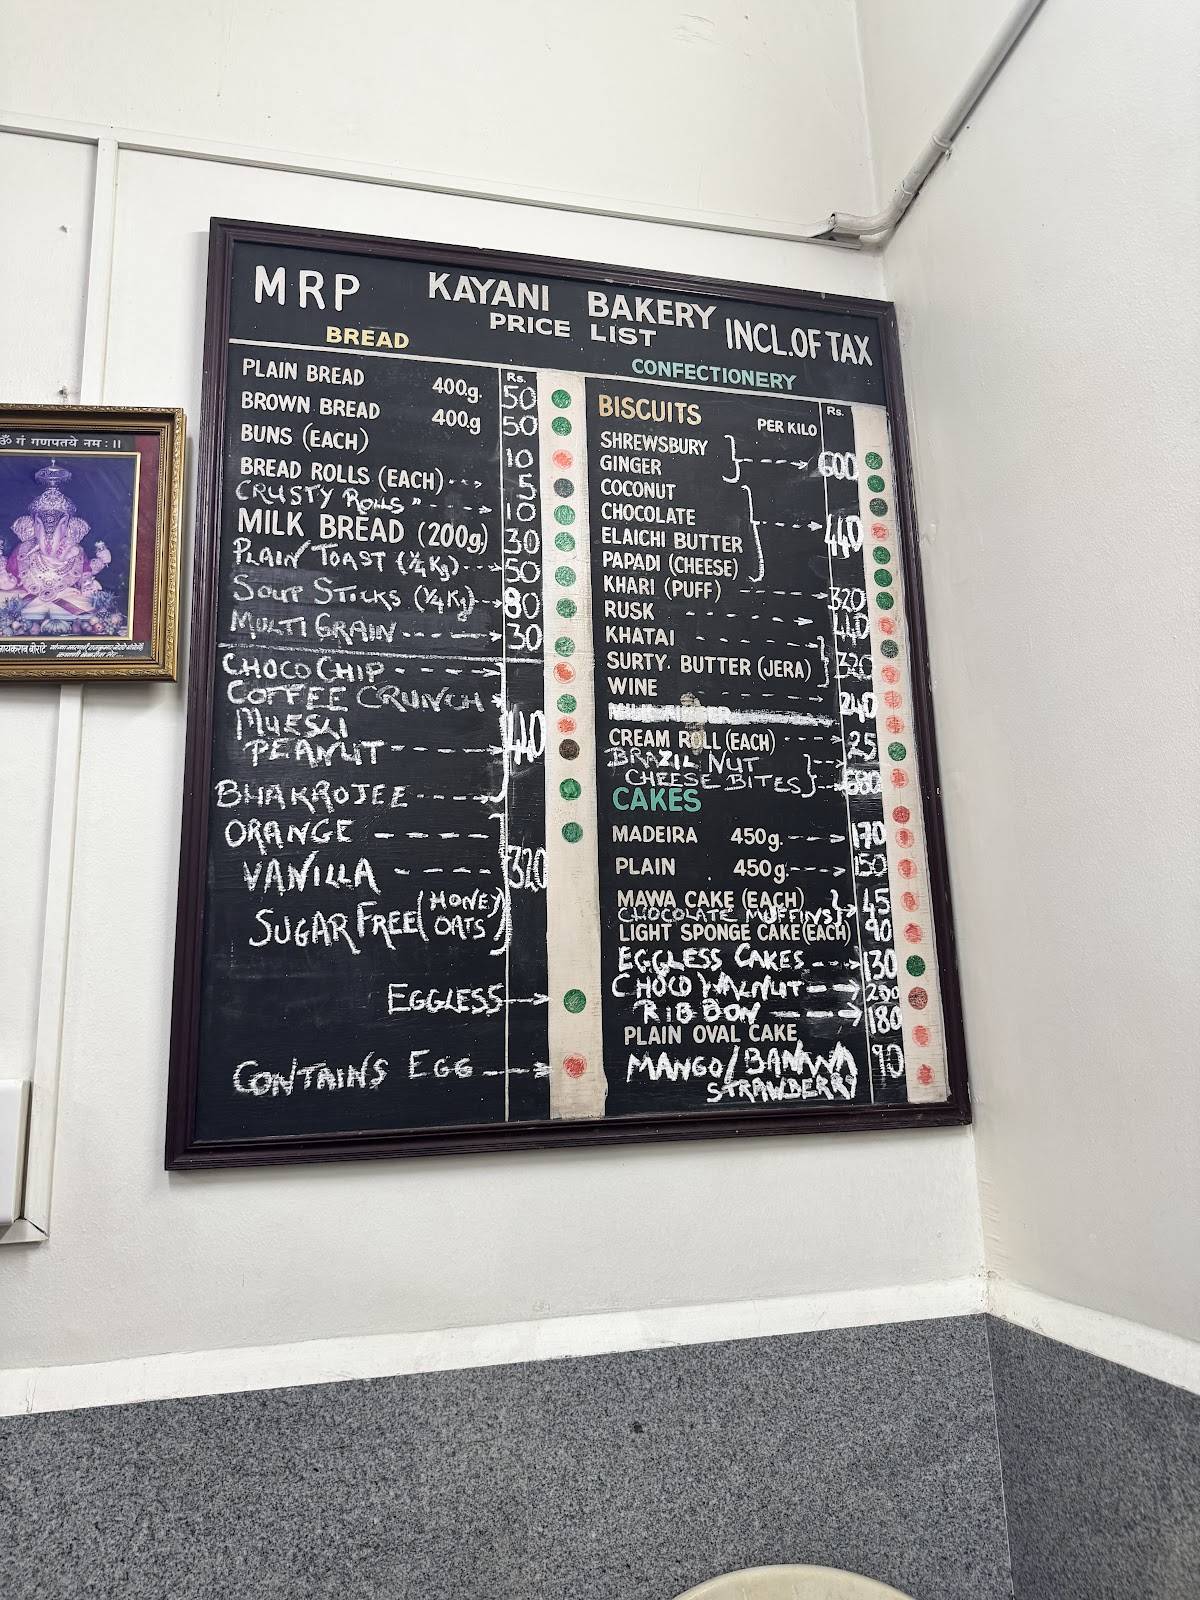 ॐ गं गणपतये नमः।।
MRP KAYANI BAKERY INCL.OF TAX
PRICE LIST
BREAD
Rs.
PLAIN BREAD 400g. 50
BROWN BREAD 400g 50
BUNS (EACH) 10
BREAD ROLLS (EACH) 5
CRUSTY ROLLS " 10
MILK BREAD (200g) 30
PLAIN TOAST (1/4 Kg) 50
SOUP STICKS (1/4 Kg) 80
MULTI GRAIN 30
CHOCO CHIP
COFFEE CRUNCH
MUESLI
PEANUT 440
BHAKROJEE
ORANGE
VANILLA 320
SUGAR FREE (HONEY
OATS)
EGGLESS
CONTAINS EGG
CONFECTIONERY
BISCUITS PER KILO Rs.
SHREWSBURY
GINGER 600
COCONUT
CHOCOLATE
ELAICHI BUTTER 440
PAPADI (CHEESE)
KHARI (PUFF) 320
RUSK 440
KHATAI
SURTY. BUTTER (JERA) 320
WINE 240
CREAM ROLL (EACH) 25
BRAZIL NUT
CHEESE BITES 680
CAKES
MADEIRA 450g. 170
PLAIN 450g. 150
MAWA CAKE (EACH) 45
CHOCOLATE MUFFINS
LIGHT SPONGE CAKE (EACH) 90
EGGLESS CAKES 130
CHOCO WALNUT 200
RIBBON 180
PLAIN OVAL CAKE
MANGO/BANANA 90
STRAWBERRY